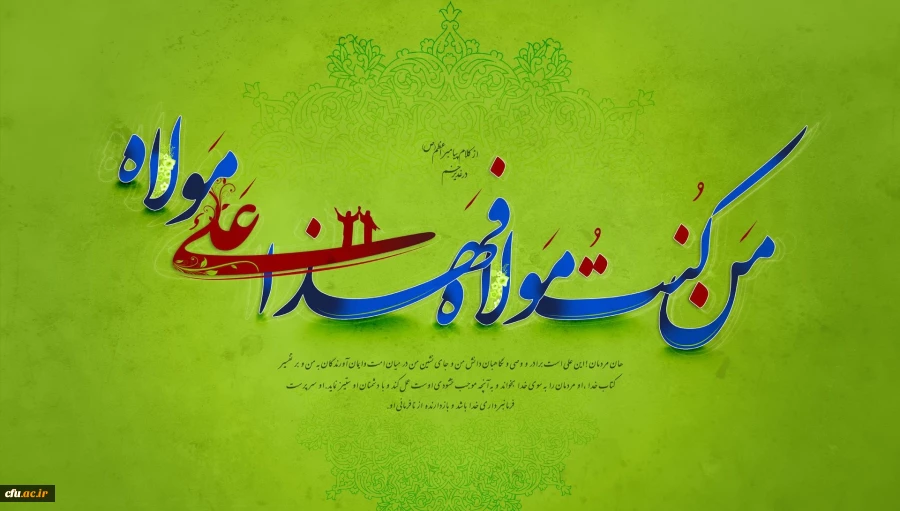 از کلام پیامبر اعظم (ص)
در غدیر خم
مَن کُنتُ مَولاه فَهذا عَلی مَولاه
هان مردمان! این علی است برادر و وصی و نگاهبان دانش من و جای نشین من در میان امت و ایمان آورندگان به من و بر تفسیر
کتاب خدا، او مردمان را به سوی خدا بخواند و به آنچه موجب خشنودی اوست عمل کند و با دشمنان او ستیز نماید. او سرپرست
فرمانبرداری خدا باشد و بازدارنده از نافرمانی او.
cfu.ac.ir